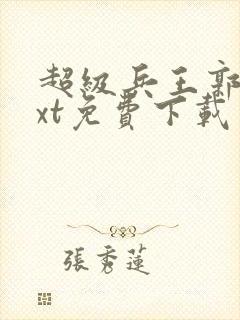 超級兵王郭
xt免費下載
張秀蓮